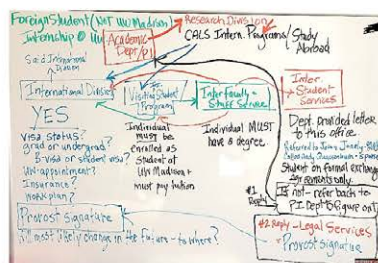 Foreign Student (NOT UW Madison)
Internship @ UW
Academic
Dept/PI
Research Division
CALS Intern. Programs/Study
Abroad
International Division
Visiting Student
Program
Inter faculty-
Staff Service
Inter.
Student
Services
YES
Visa Status?
grad or undergrad?
J-visa or student visa?
UW-appointment?
Insurance?
Work plan?
Individual
must be
enrolled as
Student at
UW Madison +
must pay tuition
Individual MUST
have a degree
Dept. provided letter
to this office
Student on formal exchange
agreements only
#1 Reply
If not - refer back to
PI Dept to figure out
Provost Signature
Will most likely change in the future - to where?
#2 Reply - Legal Services
Provost signature